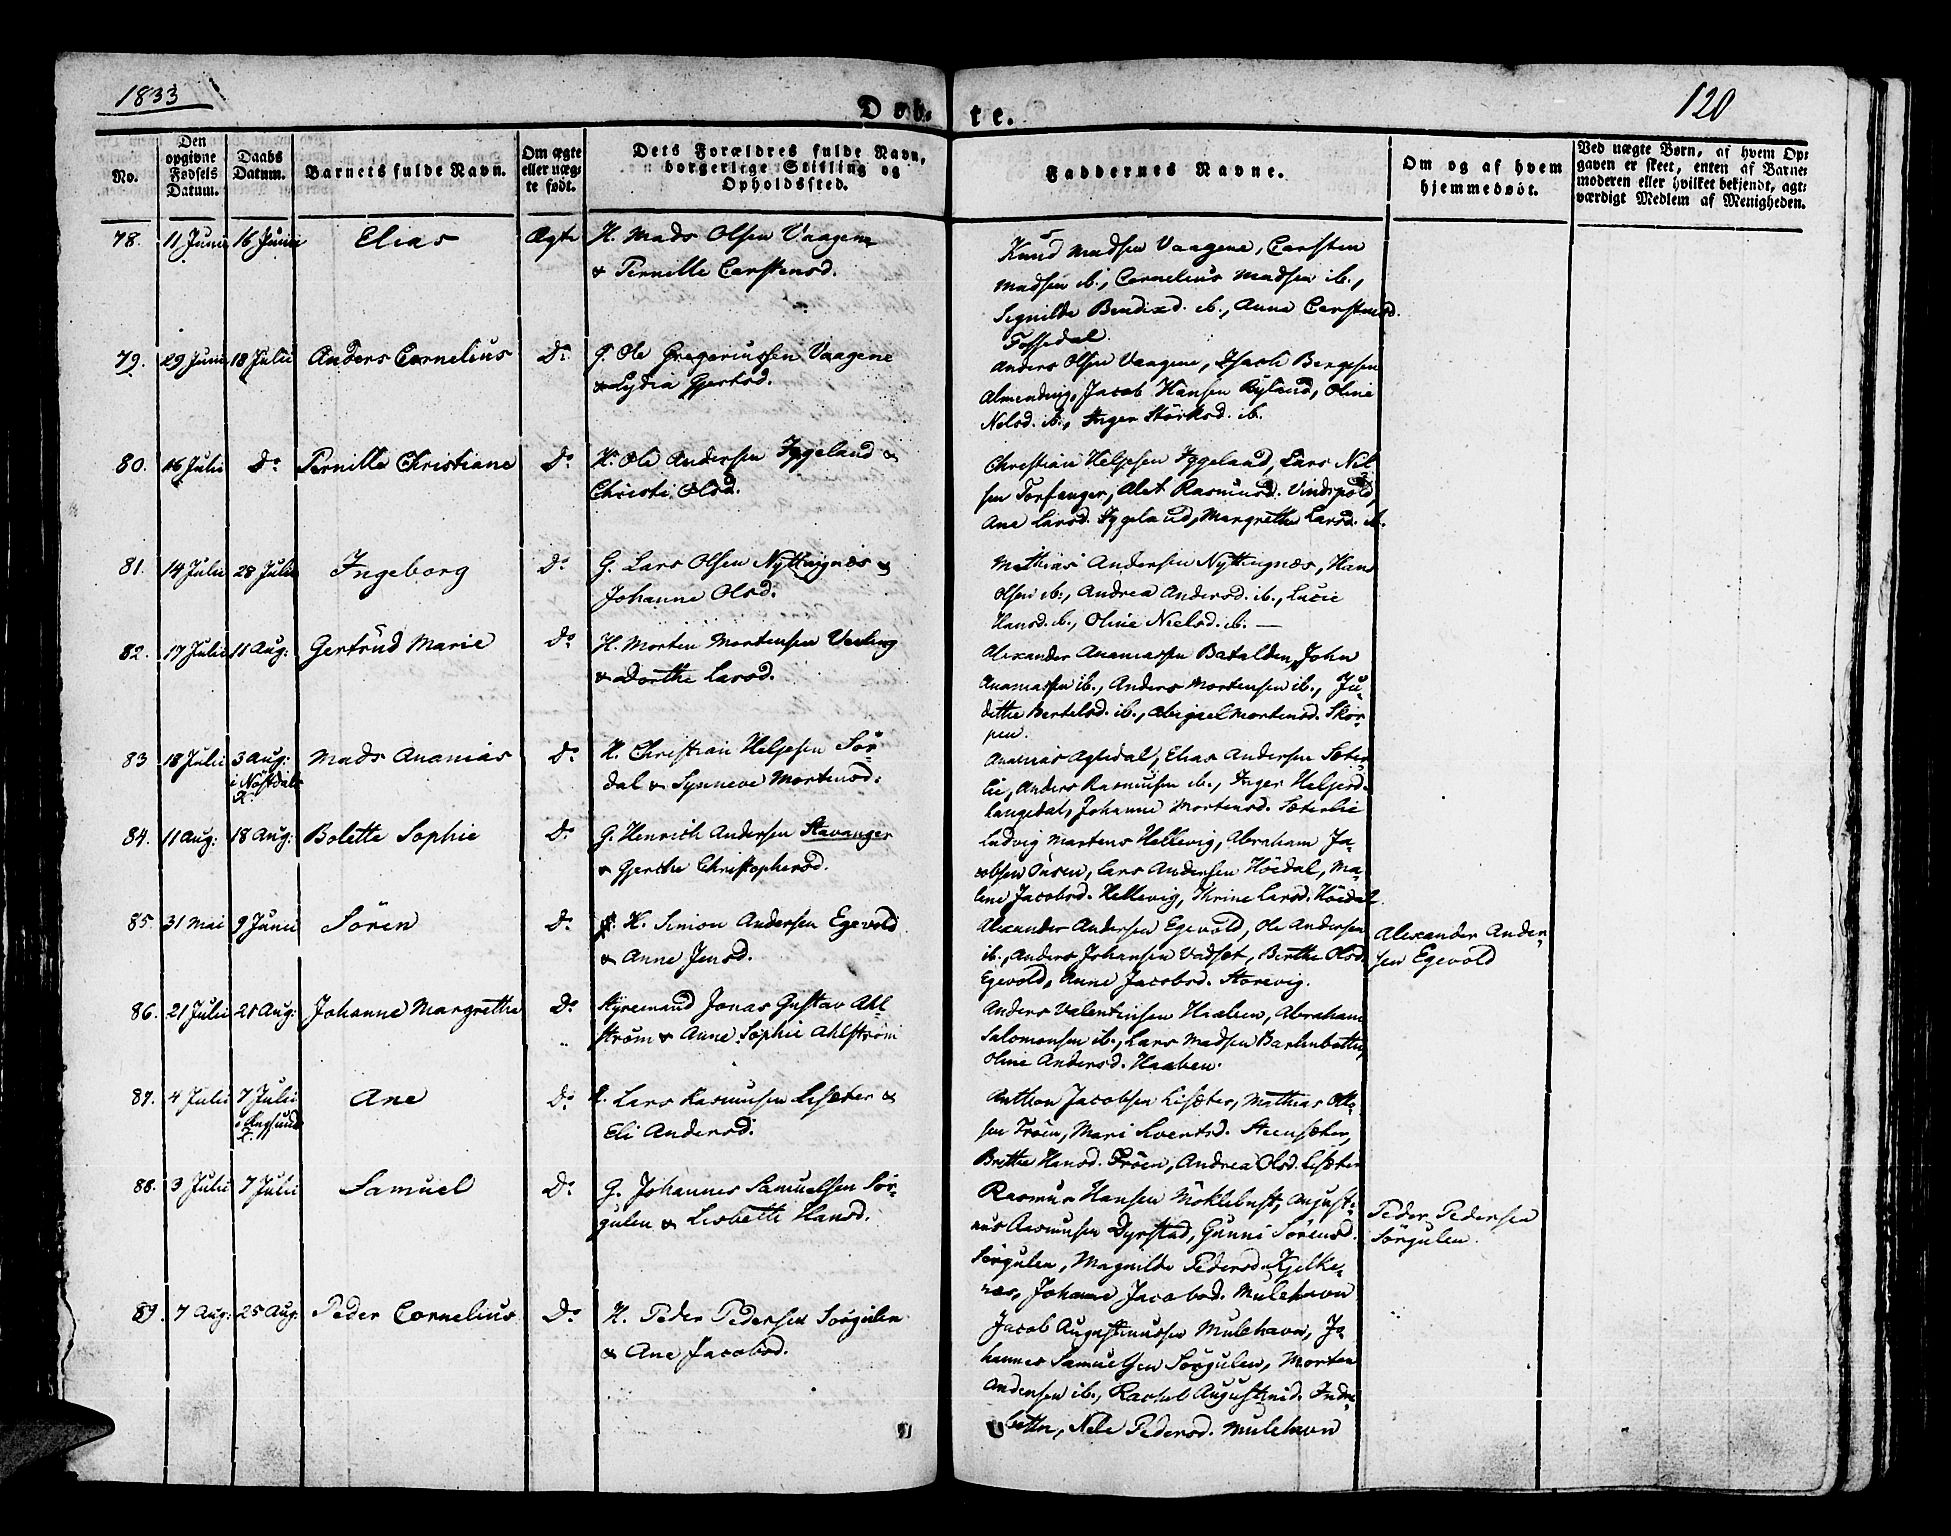 1833
120
Døb-
te.
No.
Den opgivne Fødsels Datum.
Daabs Datum.
Barnets fulde Navn.
Om ægte eller uægte født.
Dets Forældres fulde Navn, borgerlige Stilling og Opholdssted.
Faddernes Navne.
Om og af hvem hjemmedøbt.
Ved uægte Børn, af hvem Opgaven er skeet, enten af Barnemoderen eller hvilket bekjendt, agtværdigt Medlem af Menigheden.
78. 11 Junii 16 Junii Elias Ægte H. Mads Olsen Vaagene
& Pernille Carstensd.
Knud Madsen Vaagene, Carsten
Madsen ib., Cornelius Madsen ib.,
Segnilde Bendixd. ib., Anna Carstensd.
Fossedal.
79. 29 Junii 18 Julii Anders Cornelius Do G. Ole Gregeriussen Vaagene
& Lydia Gjertsd.
Anders Olsen Vaagene, Isach Bergesen
Almending, Jacob Hansen Ryland, Oline
Nelsd. ib., Inger Störksd. ib.
80. 16 Julii Do Pernille Christiane Do H. Ole Andersen Iggeland &
Christi Olsd.
Christian Heljesen Yggeland, Lars Nil-
sen Torfanger, Alet Rasmusd. Vindspold,
Ane Larsd. Iggeland, Margrethe Larsd. ib.
81. 14 Julii 28 Julii Ingeborg Do G. Lars Olsen Nyttingnæs &
Johanne Olsd.
Mathias Andersen Nyttingnæs, Hans
Olsen ib., Andrea Andersd. ib., Lucie
Hansd. ib., Oline Nielsd. ib. —
82. 17 Julii 11 Aug: Gertrüd Marie Do H. Morten Mortensen Veiling
& Dorthe Larsd.
Alexander Ananiassen Batalden, John
Ananiassen ib., Anders Mortensen ib., Ju-
ditte Bertelsd. ib., Abigael Mortensd. Skor-
pen.
83 18 Julii 3 Aug: Mads Ananias Do H. Christian Heljesen Sör-
i Nöstdals
K.
dal & Synneve Mortensd.
Ananias Agledal, Elias Andersen Sæter-
lie, Anders Rasmusen ib., Inger Heljesd.
Langedal, Johanne Mortensd. Sæterlie
84. 11 Aug: 18 Aug: Bolette Sophie Do G. Henrich Andersen Stavanger
& Gjerthe Christophersd.
Ludvig Martens Hellevig, Abraham Ja-
cobsen Önsen, Lars Andersen Höidal, Ma-
lene Jacobsd. Hellevig, Thrine Larsd. Höidal.
85. 31 Mai 9 Junii Sören Do H. Simon Andersen Egevold
& Anne Jensd.
Alexander Andersen Egevold, Ole Andersen
ib., Anders Johansen Vadset, Berthe Olsd.
Egevold, Anne Jacobsd. Storevig.
Alexander Ander-
sen Egevold
86. 21 Julii 21 Aug: Johanne Margrethe Do Styremand Jonas Gustav Ahl-
ström & Anne Sophie Ahlström
Anders Valentinsen Haaben, Abraham
Salomonsen ib., Lars Madsen Barlinbotten,
Oline Andersd. Haaben.
87. 4 Julii 7 Julii Ane Do H. Lars Rasmusen Lisæter &
K.
Eli Andersd.
Anthon Jacobsen Lisæter, Mathias Ole-
sen Tröen, Mari Sivertsd. Steensæter,
Brithe Hansd. Tröen, Andrea Olsd. Lisæter
88. 3 Julii 7 Julii Samuel Do G. Johannes Samuelsen Sör-
gulen & Lisbeth Hansd.
Rasmus Hansen Möklebust, August-
inus Rasmusen Dyrstad, Gunni Sörensd.
Sörgulen, Magnilde Pedersd. Kjelke-
næs, Johanne Jacobsd. Mulehavn
Peder Pedersen
Sörgulen.
89. 7 Aug: 25 Aug. Peder Cornelius Do H. Peder Pedersen Sörgulen
& Ane Jacobsd.
Jacob Augustinussen Mulehavn, Jo-
hannes Samuelsen Sörgulen, Morten
Andersen ib., Rachel Augustinid. Indre-
botten, Nele Pedersd. Mulehavn